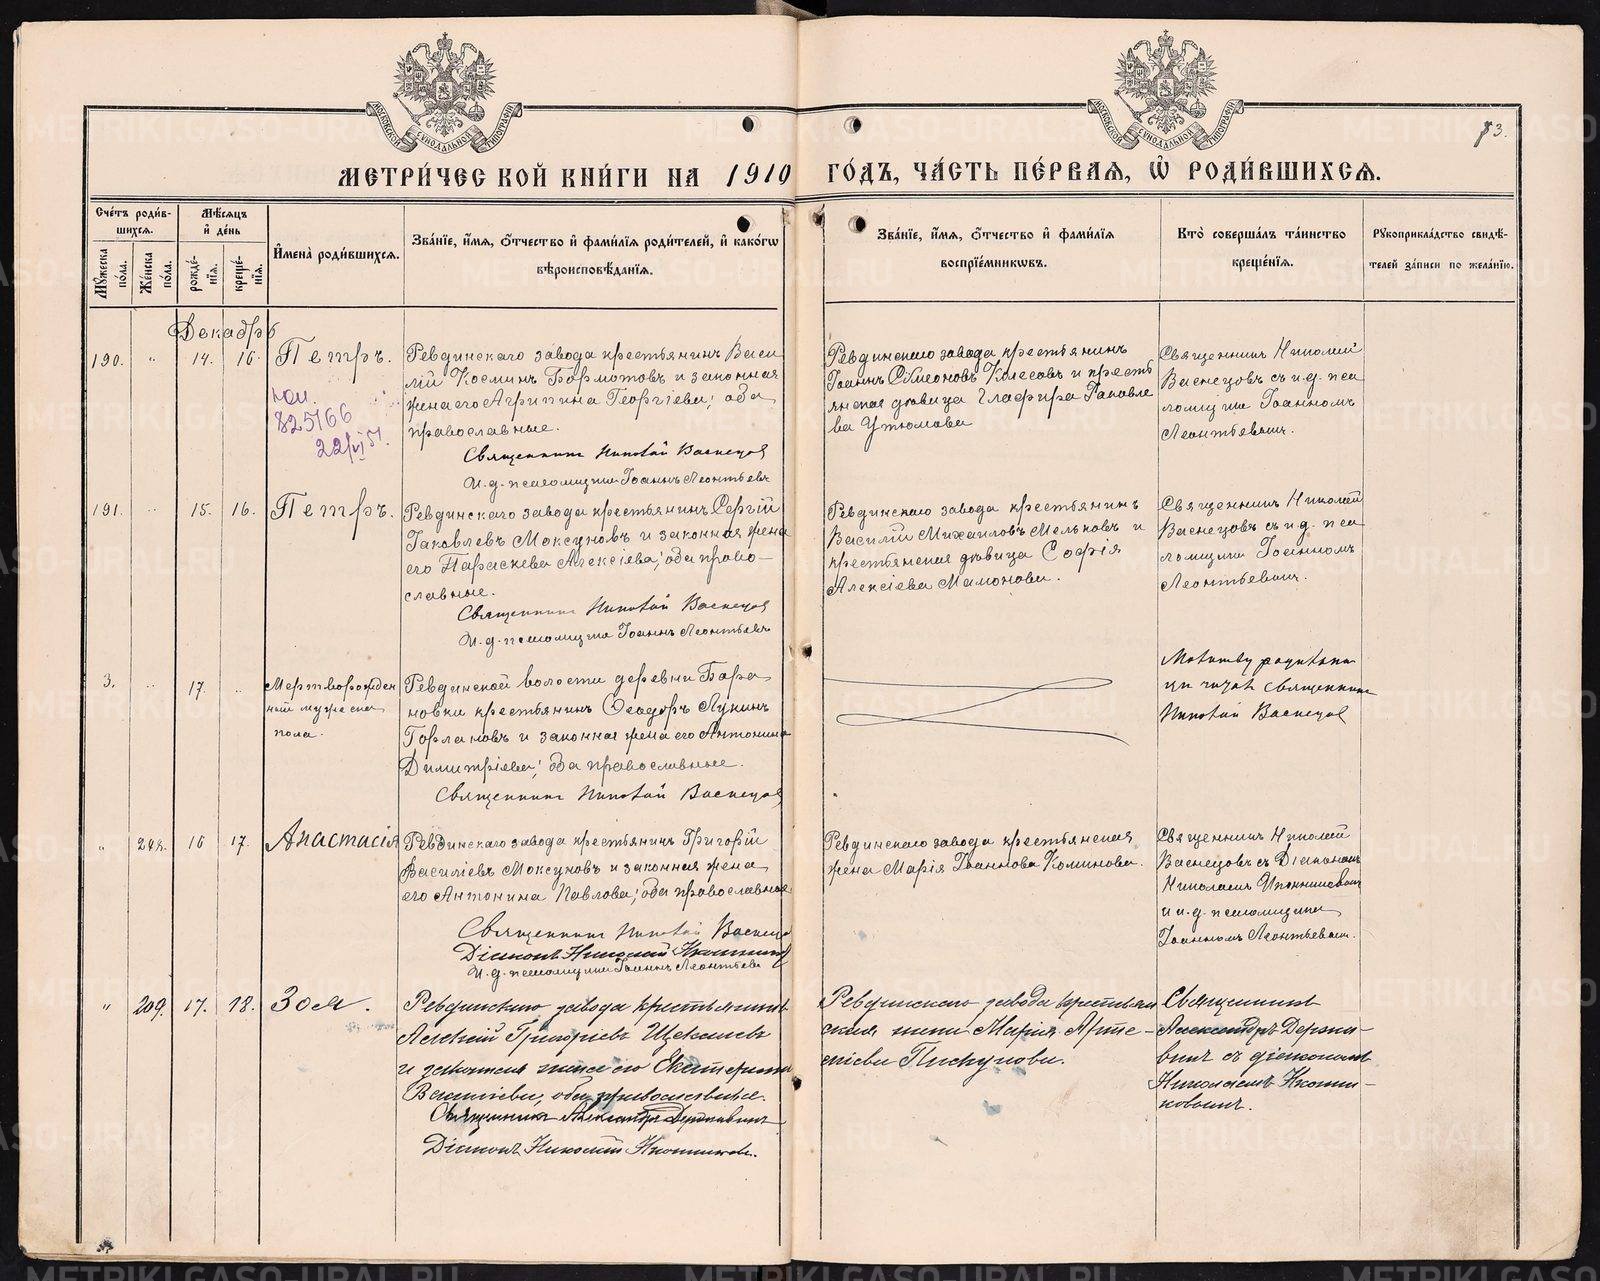 МОСКОВСКОЙ СѴНОДАЛЬНОЙ ТИПОГРАФІИ
МОСКОВСКОЙ СѴНОДАЛЬНОЙ ТИПОГРАФІИ
73.
МЕТРИ́ЧЕСКОЙ КНИ́ГИ НА 1910 ГО́ДЪ, ЧА́СТЬ ПЕ́РВАЯ, Ѿ РОДИ́ВШИХСЯ.
Сче́тъ роди́вшихся.
Му́жеска по́ла.
Же́нска по́ла.
Мѣ́сяцъ и҆ де́нь
рожде́нїя.
креще́нїя.
И҆мена̀ роди́вшихся.
Зва́нїе, и҆́мя, ѻ҆́тчество и҆ фами́лїя роди́телей, и҆ како́гѡ
вѣроисповѣ́данїя.
Зва́нїе, и҆́мя, ѻ҆́тчество и҆ фами́лїя
воспрїе́мникѡвъ.
Кто̀ соверша́лъ та́инство
креще́нїя.
Рꙋкоприкла́дство свидѣ́-
телей за́писи по жела́нїю.
Декабрь
190. " 14. 16. Петръ.
Ревдинскаго завода крестьянинъ Васи
лій Косминъ Бормотовъ и законная
жена его Агрипина Георгіева; оба
православные.
Священникъ Николай Васнецов
И. д. псаломщика Іоаннъ Леонтьевъ
825166
22/VI 51.
Ревдинскаго завода крестьянинъ
Іоаннъ Сѵмеоновъ Колесовъ и кресть
янская дѣвица Глафира Іаковле
ва Утюмова
Священникъ Николай
Васнецовъ съ и. д. пса
ломщика Іоанномъ
Леонтьевым.
191. " 15. 16. Петръ.
Ревдинскаго завода крестьянинъ Сергій
Іаковлевъ Моксуновъ и законная жена
его Параскева Алексіева; оба право-
славные.
Священникъ Николай Васнецов
И. д. псаломщика Іоаннъ Леонтьевъ
Ревдинскаго завода крестьянинъ
Василій Михаиловъ Мельковъ и
крестьянская дѣвица Софія
Алексіева Мамонова.
Священникъ Николай
Васнецовъ съ и. д. пса
ломщика Іоанномъ
Леонтьевым.
3. " 17. " Мертворожден
ный мужеска
пола.
Ревдинской волости деревни Бара
новки крестьянинъ Ѳеодоръ Лукинъ
Горлановъ и законная жена его Антонина
Димитріева; оба православные.
Священникъ Николай Васнецов
Молитву родитель
ницѣ читалъ священникъ
Николай Васнецов
" 208. 16 17. Анастасія
Ревдинскаго завода крестьянинъ Григорій
Василіевъ Моксуновъ и законная жена
его Антонина Павлова; оба православные
Священникъ Николай Васнецо
Діаконъ Николай
И. д. псаломщика Іоаннъ Леонтьевъ
Ревдинскаго завода крестьянская
жена Марія Іоаннова Коминова.
Священникъ Николай
Васнецовъ съ Діакономъ
Николаемъ Иконниковымъ
и и. д. псаломщика
Іоанномъ Леонтьевым.
" 209. 17. 18. Зоя.
Ревдинскаго завода крестьянинъ
Алексій Григоріевъ Щекалевъ
и законная жена его Екатерина
Василіева, оба православные.
Священникъ Александръ Державинъ
Діаконъ Николай Иконников.
Ревдинскаго завода крестьян
ская жена Марія Арте-
міева Пискунова.
Священникъ
Александръ Держа-
винъ съ діакономъ
Николаемъ Иконни-
ковымъ.
METRIKI.GASO-URAL.RU